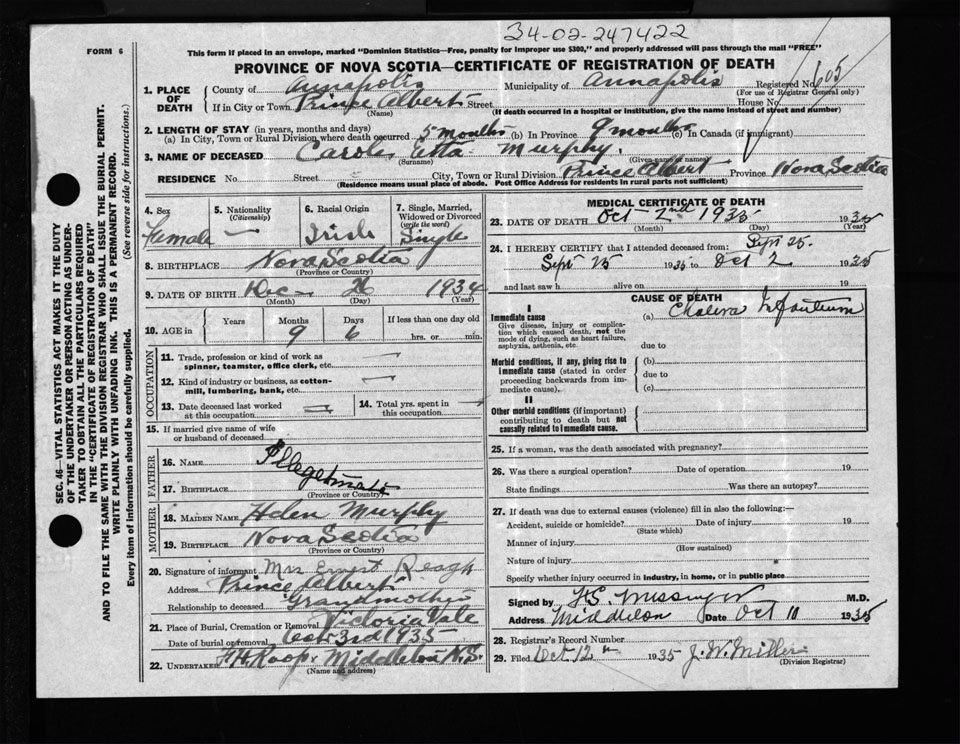 34-02-247422
FORM 6
This form if placed in an envelope, marked "Dominion Statistics—Free, penalty for improper use $300," and properly addressed will pass through the mail "FREE"
PROVINCE OF NOVA SCOTIA—CERTIFICATE OF REGISTRATION OF DEATH
1. PLACE OF DEATH
County of Annapolis Municipality of Annapolis Registered No. 605
(For use of Registrar General only)
If in City or Town Prince Albert Street House No.
(Name) (If death occurred in a hospital or institution, give the name instead of street and number)
2. LENGTH OF STAY (in years, months and days)
(a) In City, Town or Rural Division where death occurred 5 months (b) In Province 9 months (c) In Canada (if immigrant)
3. NAME OF DECEASED Carole Etta Murphy.
(Surname) (Given name or names)
RESIDENCE No. Street City, Town or Rural Division Prince Albert Province Nova Scotia
(Residence means usual place of abode. Post Office Address for residents in rural parts not sufficient)
SEC. 46—VITAL STATISTICS ACT MAKES IT THE DUTY
OF THE UNDERTAKER OR PERSON ACTING AS UNDER-
TAKER TO OBTAIN ALL THE PARTICULARS REQUIRED
IN THE "CERTIFICATE OF REGISTRATION OF DEATH"
AND TO FILE THE SAME WITH THE DIVISION REGISTRAR WHO SHALL ISSUE THE BURIAL PERMIT.
WRITE PLAINLY WITH UNFADING INK. THIS IS A PERMANENT RECORD.
Every item of information should be carefully supplied. (See reverse side for instructions.)
4. Sex Female
5. Nationality (Citizenship) —
6. Racial Origin Irish
7. Single, Married, Widowed or Divorced (write the word) Single
8. BIRTHPLACE Nova Scotia
(Province or Country)
9. DATE OF BIRTH Dec 26 1934
(Month) (Day) (Year)
10. AGE in Years Months Days If less than one day old
9 6 hrs. or min.
OCCUPATION
11. Trade, profession or kind of work as spinner, teamster, office clerk, etc. —
12. Kind of industry or business, as cotton-mill, lumbering, bank, etc. —
13. Date deceased last worked at this occupation —
14. Total yrs. spent in this occupation —
15. If married give name of wife or husband of deceased
FATHER
16. Name Illegetmate
17. Birthplace
(Province or Country)
MOTHER
18. Maiden Name Helen Murphy
19. Birthplace Nova Scotia
(Province or Country)
20. Signature of informant Mrs Ernest Reagh
Address Prince Albert
Relationship to deceased Grandmother
21. Place of Burial, Cremation or Removal Victoria Vale
Date of burial or removal 3rd 1935
22. UNDERTAKER F. H. Roop, Middleton N.S.
(Name and address)
MEDICAL CERTIFICATE OF DEATH
23. DATE OF DEATH Oct 2nd 1935 1935
(Month) (Day) (Year)
24. I HEREBY CERTIFY that I attended deceased from: Sept 25.
Sept 25 1935 to Oct 2 1935
and last saw h alive on 19
CAUSE OF DEATH
I
Immediate cause
Give disease, injury or complication which caused death, not the mode of dying, such as heart failure, asphyxia, asthenia, etc.
(a) Cholera Infantum
due to
Morbid conditions, if any, giving rise to immediate cause (stated in order proceeding backwards from immediate cause).
(b)
due to
(c)
II
Other morbid conditions (if important) contributing to death but not causally related to immediate cause.
25. If a woman, was the death associated with pregnancy?
26. Was there a surgical operation? Date of operation 19
State findings Was there an autopsy?
27. If death was due to external causes (violence) fill in also the following:—
Accident, suicide or homicide? Date of injury 19
(State which)
Manner of injury
(How sustained)
Nature of injury
Specify whether injury occurred in industry, in home, or in public place
Signed by H.S. Messenger M.D.
Address Middleton Date Oct 10 1935
28. Registrar's Record Number
29. Filed Oct. 12th 1935 J. W. Miller
(Division Registrar)